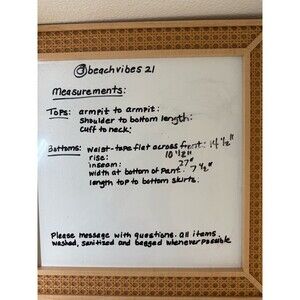 @beachvibes21
Measurements:
Tops: armpit to armpit:
shoulder to bottom length:
cuff to neck:
Bottoms: waist-tape flat across front: 14 1/2"
rise: 10 1/2"
inseam: 27"
width at bottom of pant: 7 1/2"
length top to bottom skirts:
Please message with questions. all items
washed, sanitized and bagged whenever possible